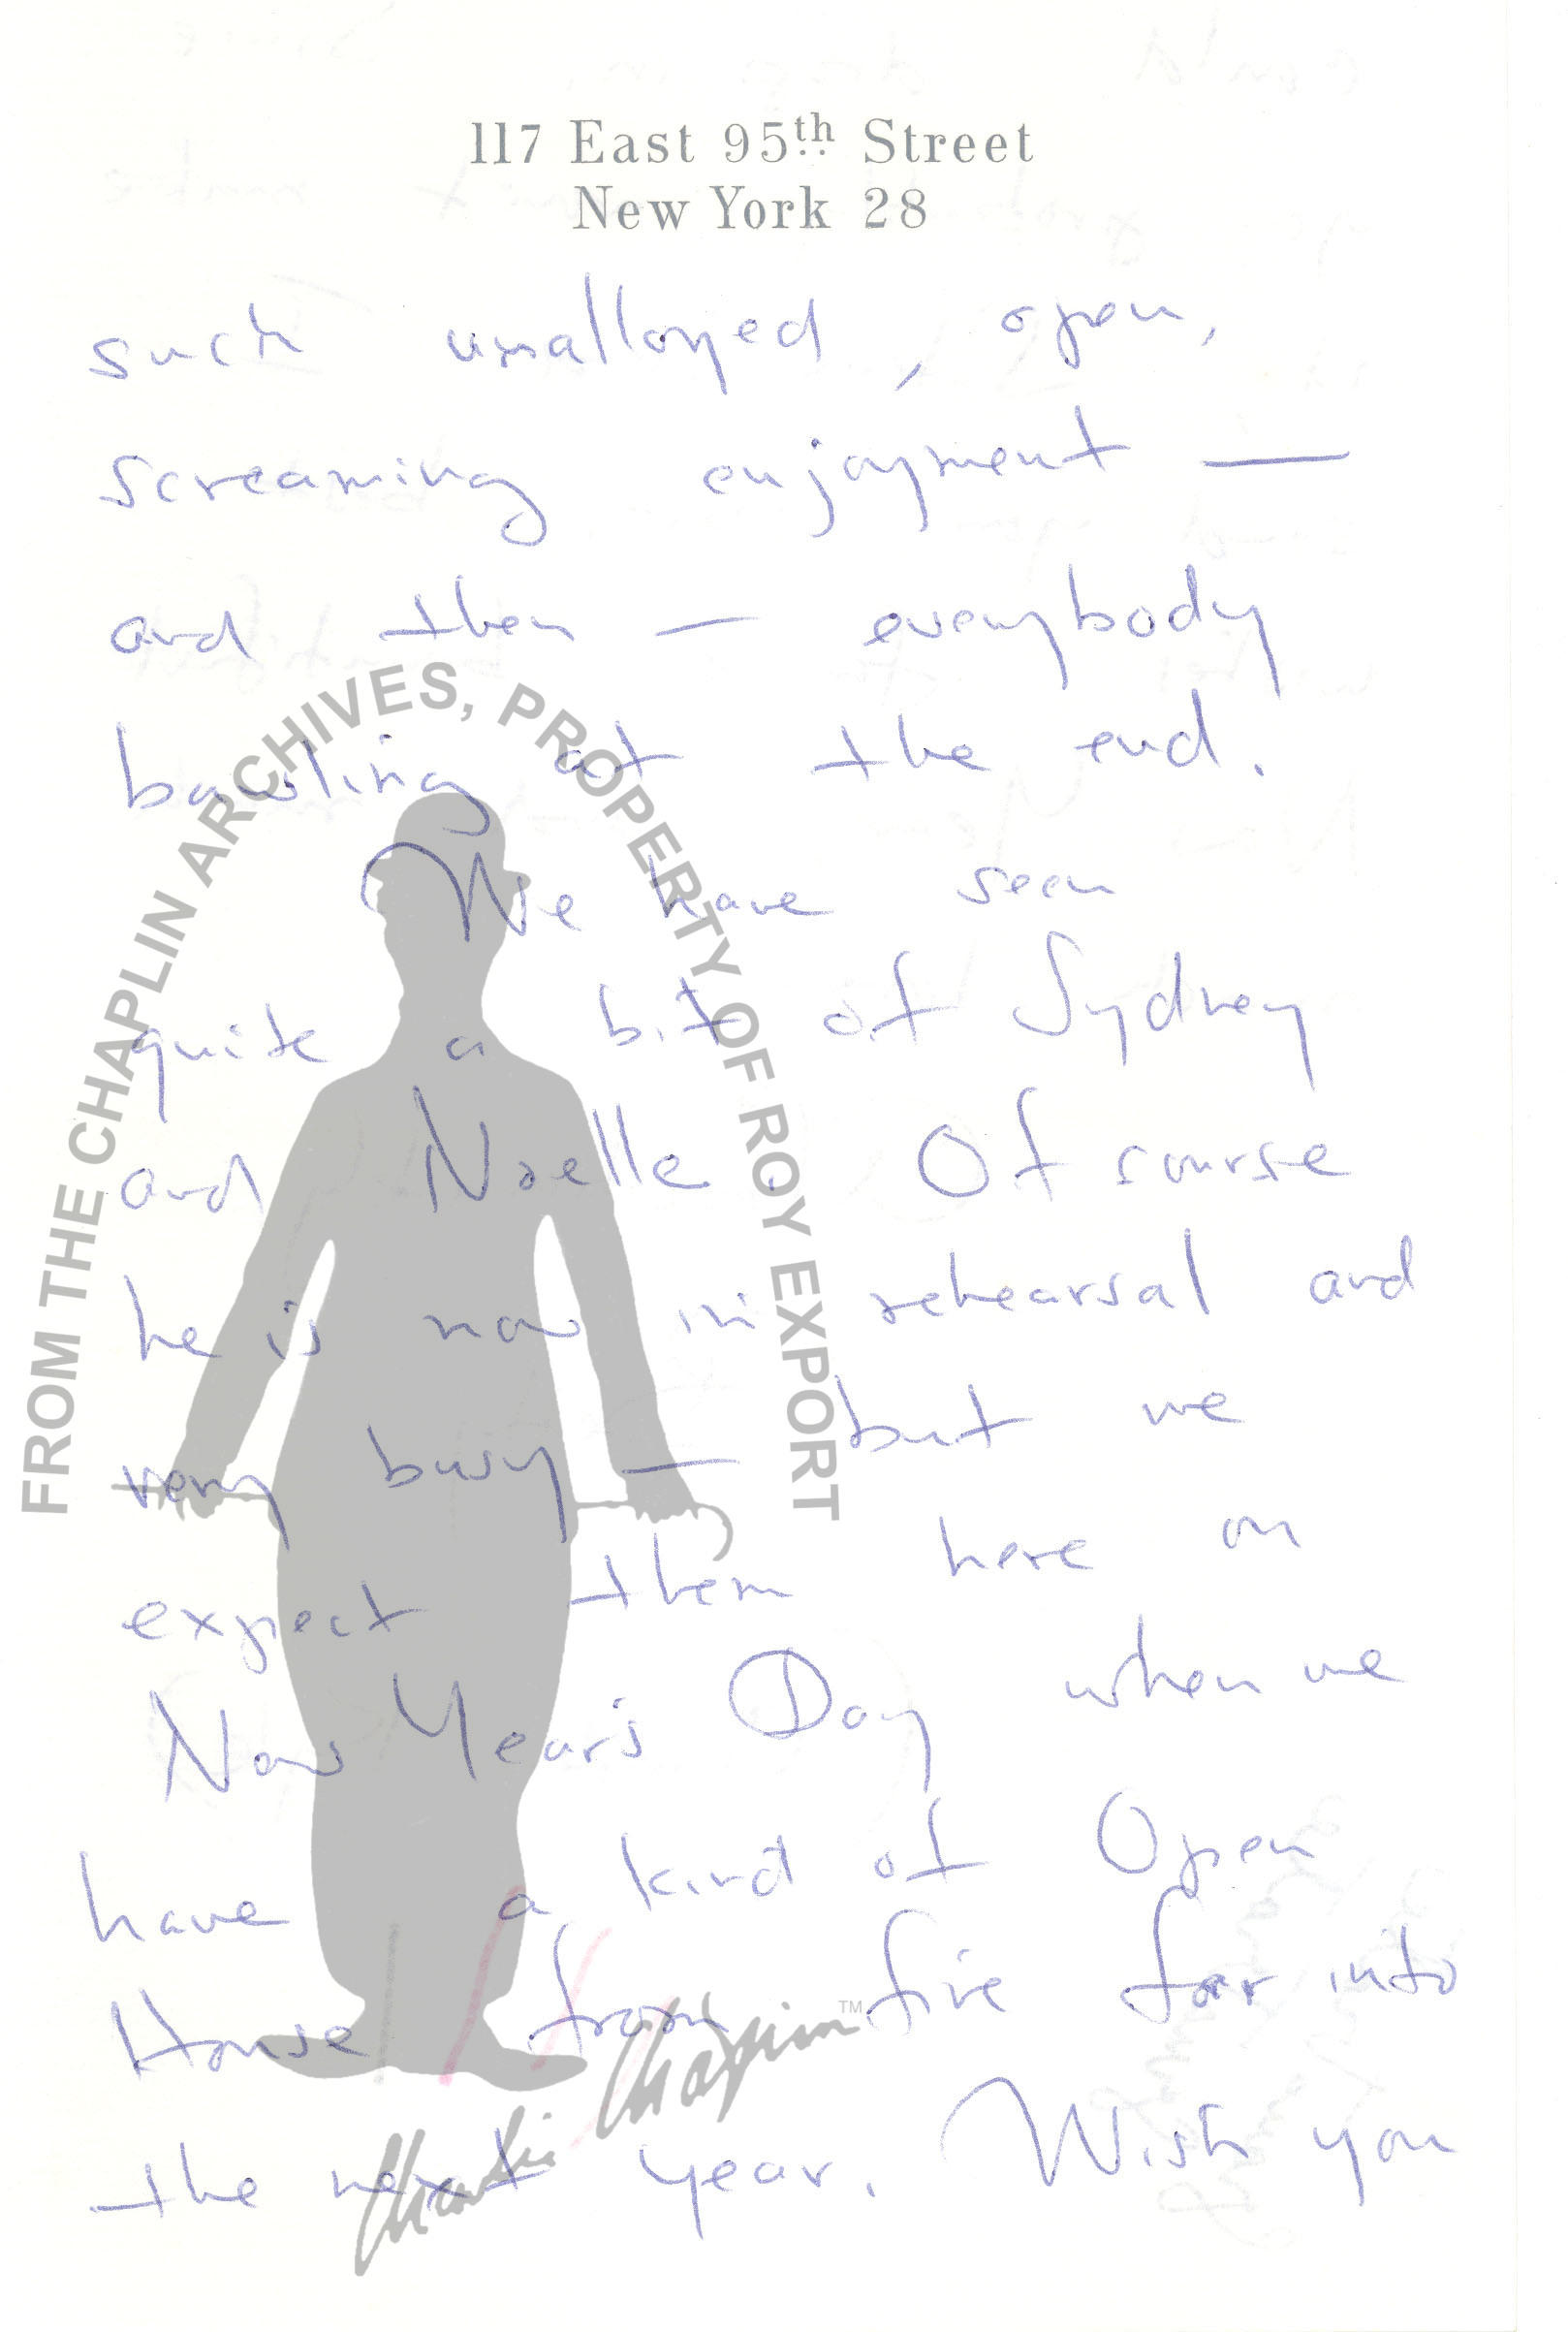 117 East 95th Street
New York 28
such unalloyed, open,
screaming enjoyment —
and then — everybody
bawling at the end.
We have seen
quite a bit of Sydney
and Noelle. Of course
he is now in rehearsal and
very busy — but we
expect them here on
New Year's Day when we
have a kind of Open
House from five far into
the next year. Wish you
FROM THE CHAPLIN ARCHIVES, PROPERTY OF ROY EXPORT
Charlie Chaplin™